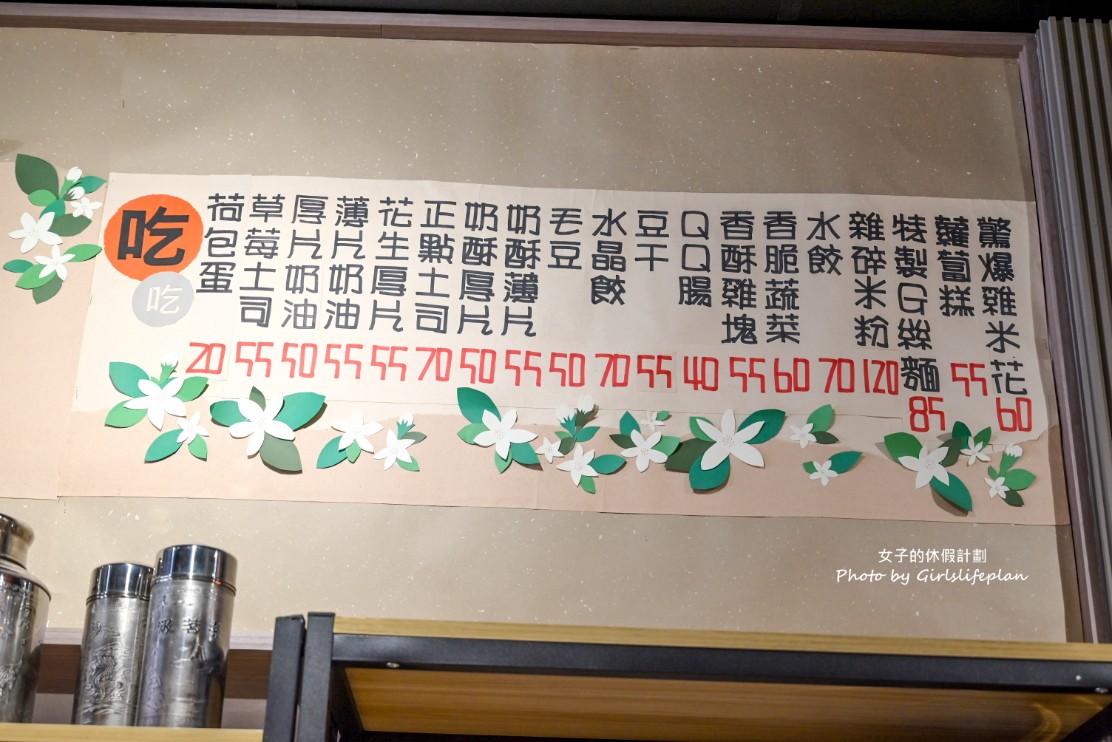 吃
吃
荷包蛋 20
草莓土司 55
厚片奶油 50
薄片奶油 55
花生厚片 55
正點土司 70
奶酥厚片 50
奶酥薄片 55
毛豆 50
水晶餃 70
豆干 55
QQ腸 40
香酥雞塊 55
香脆蔬菜 60
水餃 70
雜碎米粉 120
特製G絲麵 85
蘿蔔糕 55
驚爆雞米花 60
女子的休假計劃
Photo by Girlslifeplan